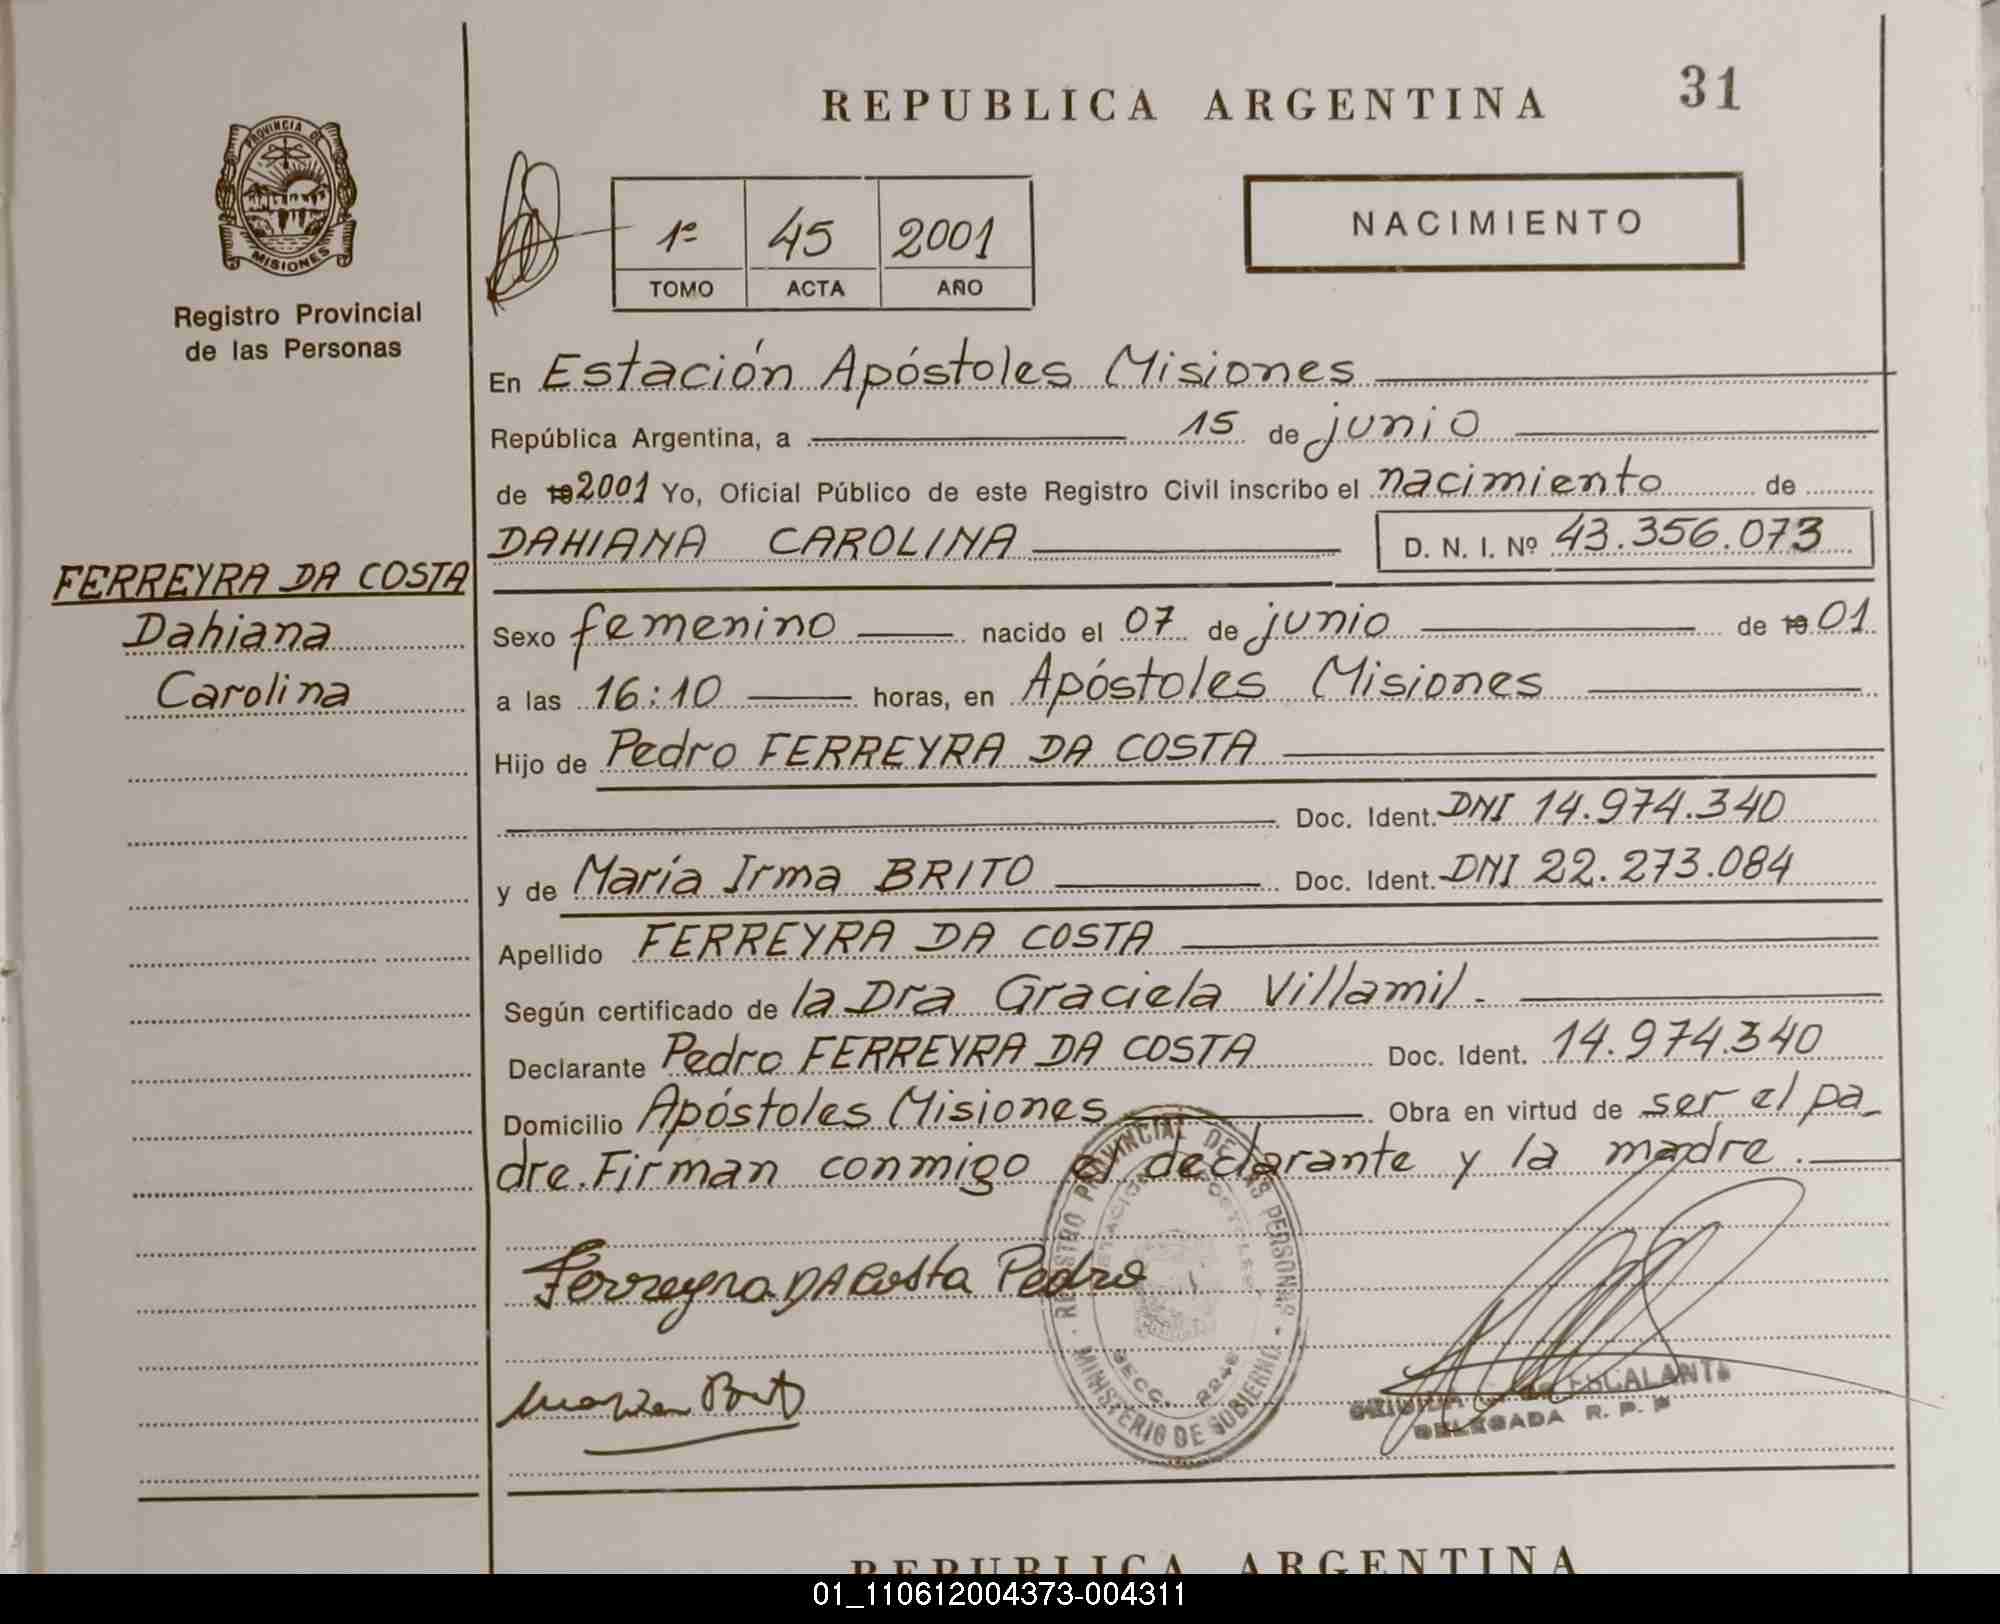 REPUBLICA ARGENTINA 31
PROVINCIA DE
MISIONES
Registro Provincial
de las Personas
1º 45 2001
TOMO ACTA AÑO
NACIMIENTO
En Estación Apóstoles Misiones
República Argentina, a 15 de junio
de 19 2001 Yo, Oficial Público de este Registro Civil inscribo el nacimiento de
DAHIANA CAROLINA D. N. I. Nº 43.356.073
FERREYRA DA COSTA
Dahiana
Carolina
Sexo femenino nacido el 07 de junio de 19 01
a las 16:10 horas, en Apóstoles Misiones
Hijo de Pedro FERREYRA DA COSTA
Doc. Ident. DNI 14.974.340
y de María Irma BRITO Doc. Ident. DNI 22.273.084
Apellido FERREYRA DA COSTA
Según certificado de la Dra Graciela Villamil.
Declarante Pedro FERREYRA DA COSTA Doc. Ident. 14.974.340
Domicilio Apóstoles Misiones Obra en virtud de ser el pa_
dre. Firman conmigo el declarante y la madre.
Ferreyra DA Costa Pedro
REGISTRO PROVINCIAL DE LAS PERSONAS
ESTACION APOSTOLES
SECC. 2246
MINISTERIO DE GOBIERNO
ESCALANTE
DELEGADA R. P. P
REPUBLICA ARGENTINA
01_110612004373-004311